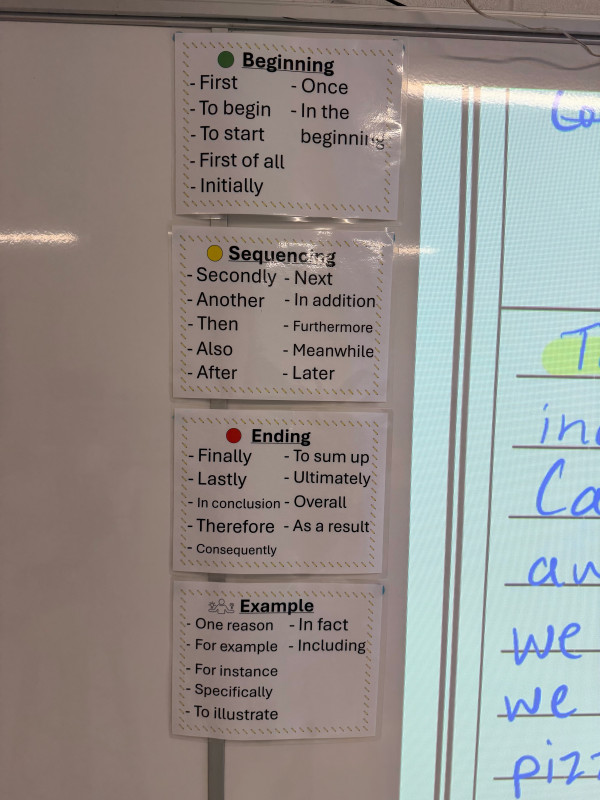 Beginning
- First
- To begin
- To start
- First of all
- Initially
- Once
- In the
beginning
Sequencing
- Secondly
- Another
- Then
- Also
- After
- Next
- In addition
- Furthermore
- Meanwhile
- Later
Ending
- Finally
- Lastly
- In conclusion
- Therefore
- Consequently
- To sum up
- Ultimately
- Overall
- As a result
Example
- One reason
- For example
- For instance
- Specifically
- To illustrate
- In fact
- Including
we
we